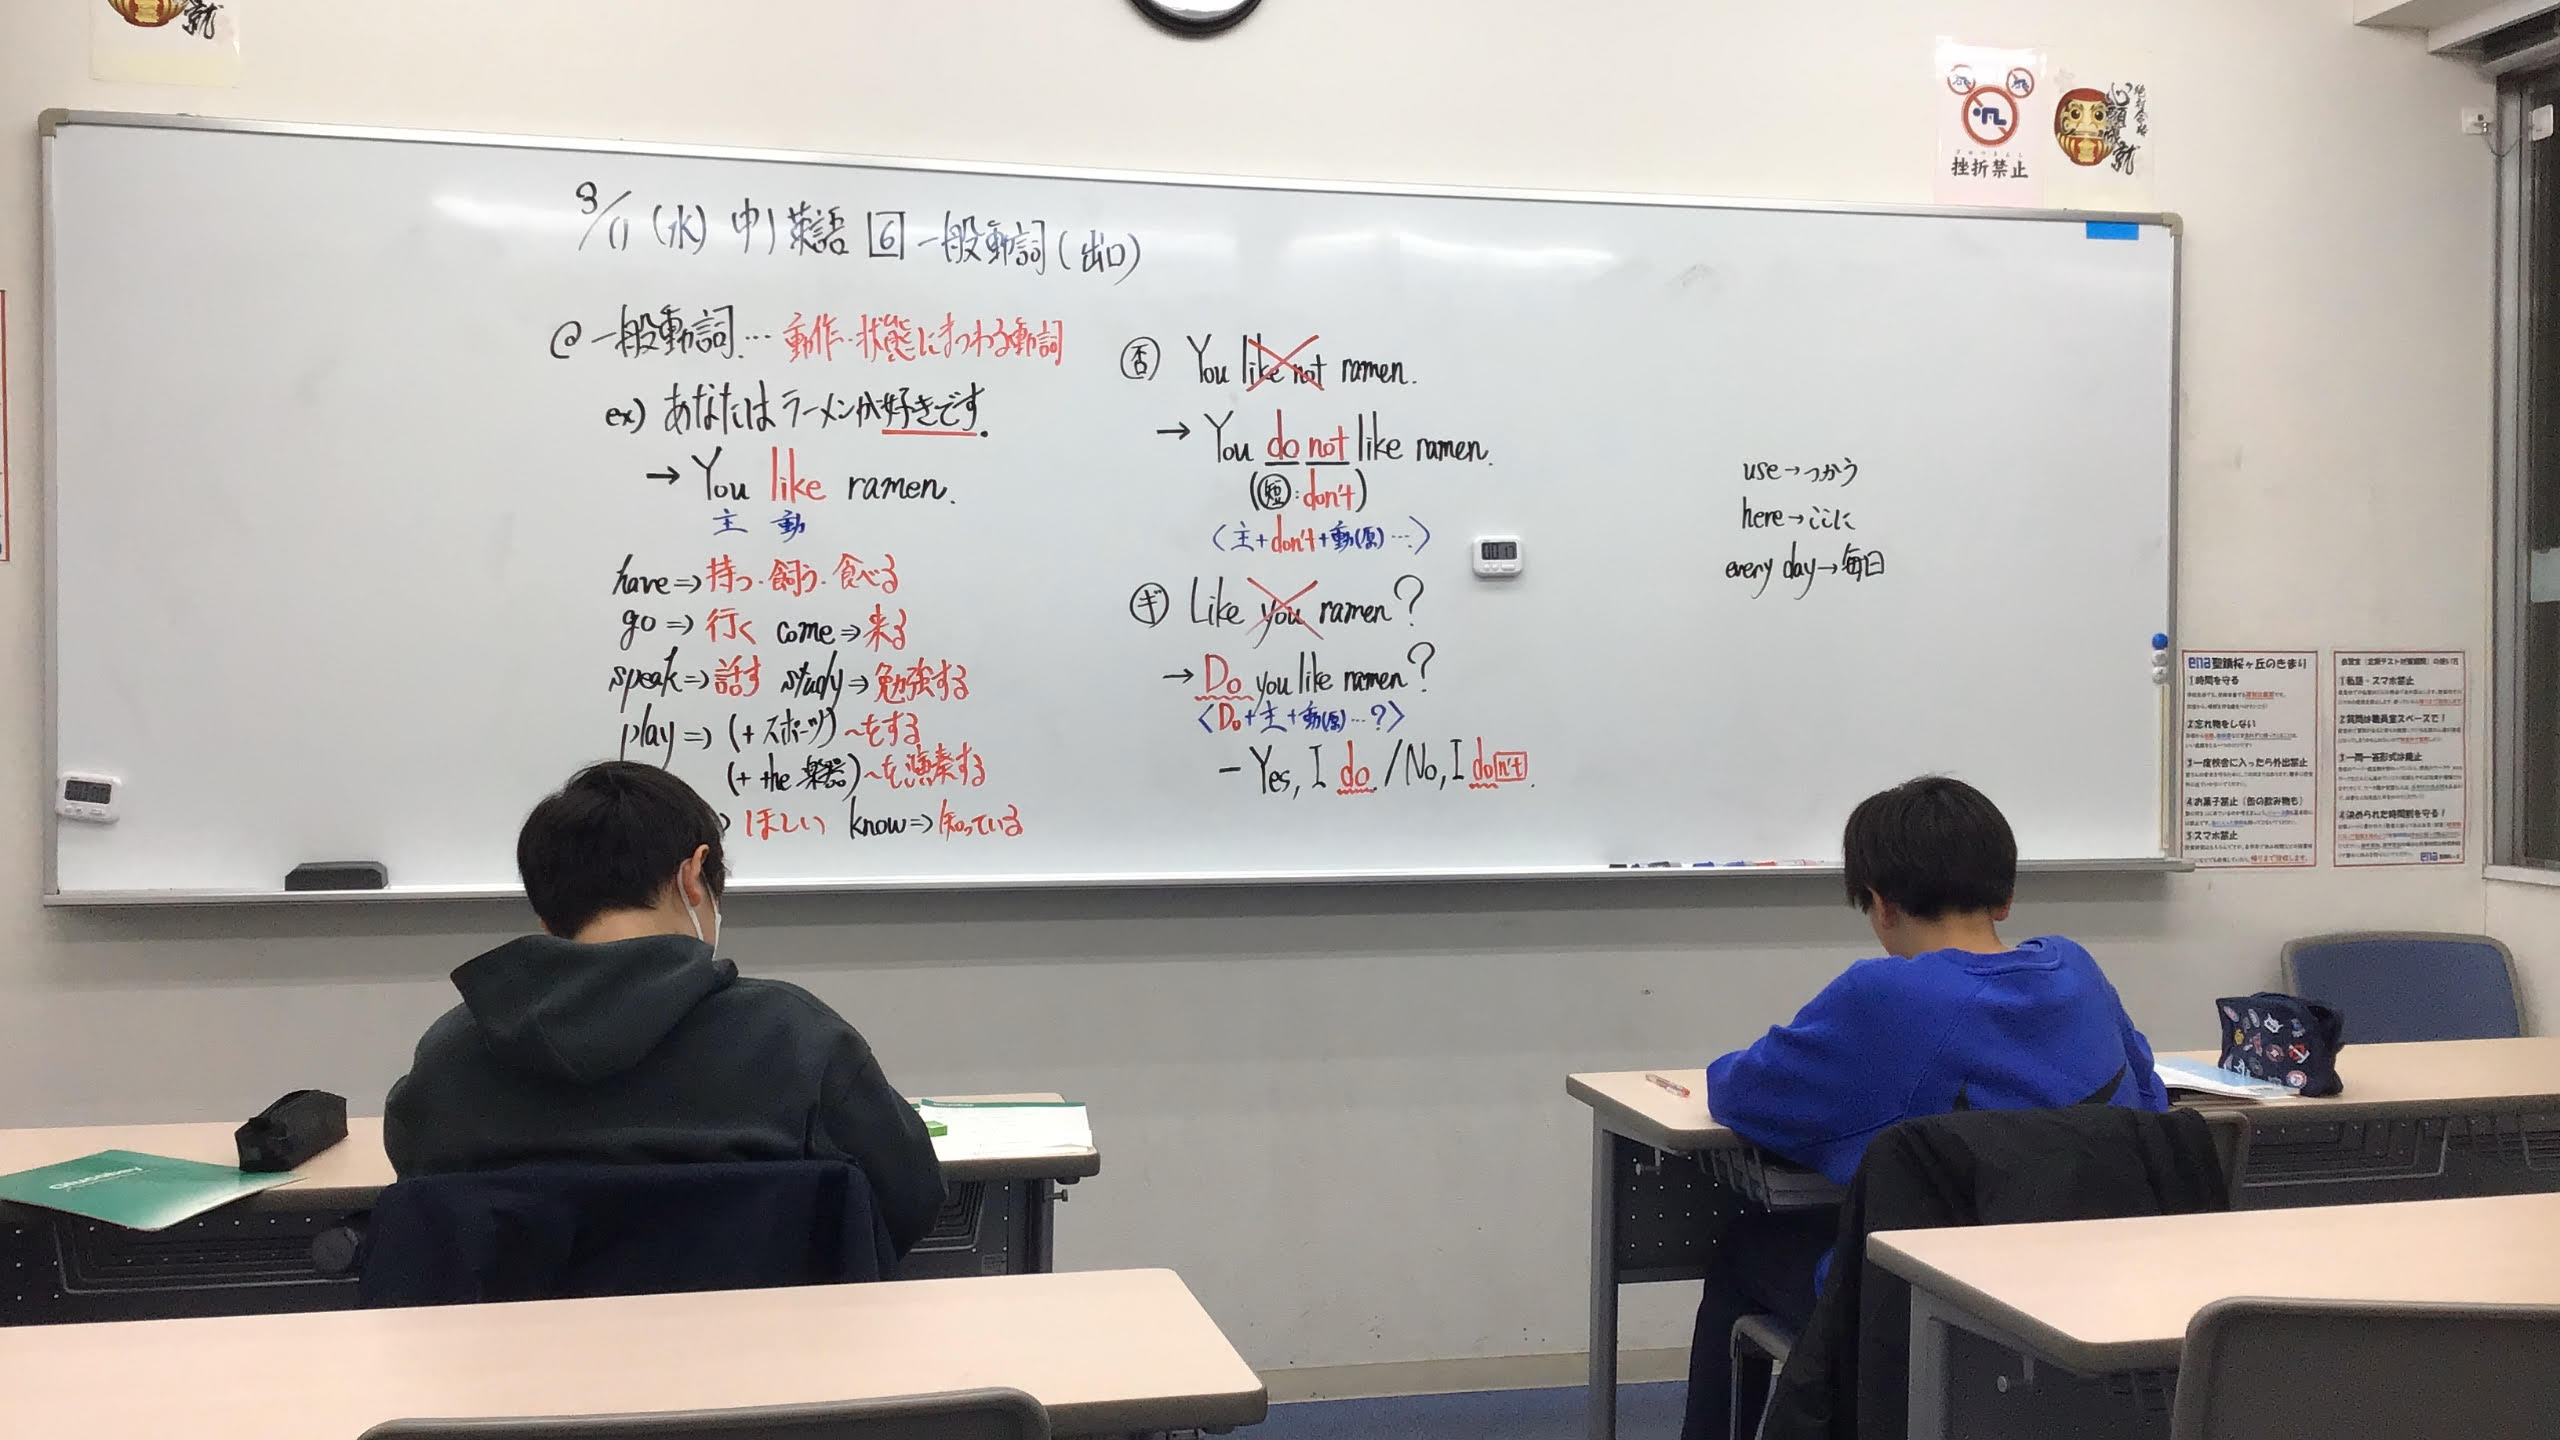 3/11 (水) 中1 英語 6 一般動詞 (出口)
@ 一般動詞… 動作・状態にまつわる動詞
ex) あなたはラーメンが好きです.
→ You like ramen.
主 動
have⇒持つ・飼う・食べる
go⇒行く come⇒来る
speak⇒話す study⇒勉強する
play⇒(+スポーツ) ~をする
(+the 楽器) ~を演奏する
ほしい know⇒知っている
否 You like not ramen.
→ You do not like ramen.
(短:don't)
〈主+don't+動(原)…〉
ギ Like you ramen?
→ Do you like ramen?
〈Do+主+動(原)…?〉
- Yes, I do. / No, I don't.
use→つかう
here→ここに
every day→毎日
挫折禁止
心願成就
就
ena聖蹟桜ヶ丘のきまり
①時間を守る
②忘れ物をしない
③一度校舎に入ったら外出禁止
④お菓子禁止（缶の飲み物も）
⑤スマホ禁止
①私語・スマホ禁止
②質問は職員室スペースで！
③一問一答形式は廃止
④決められた時間割を守る！
ena